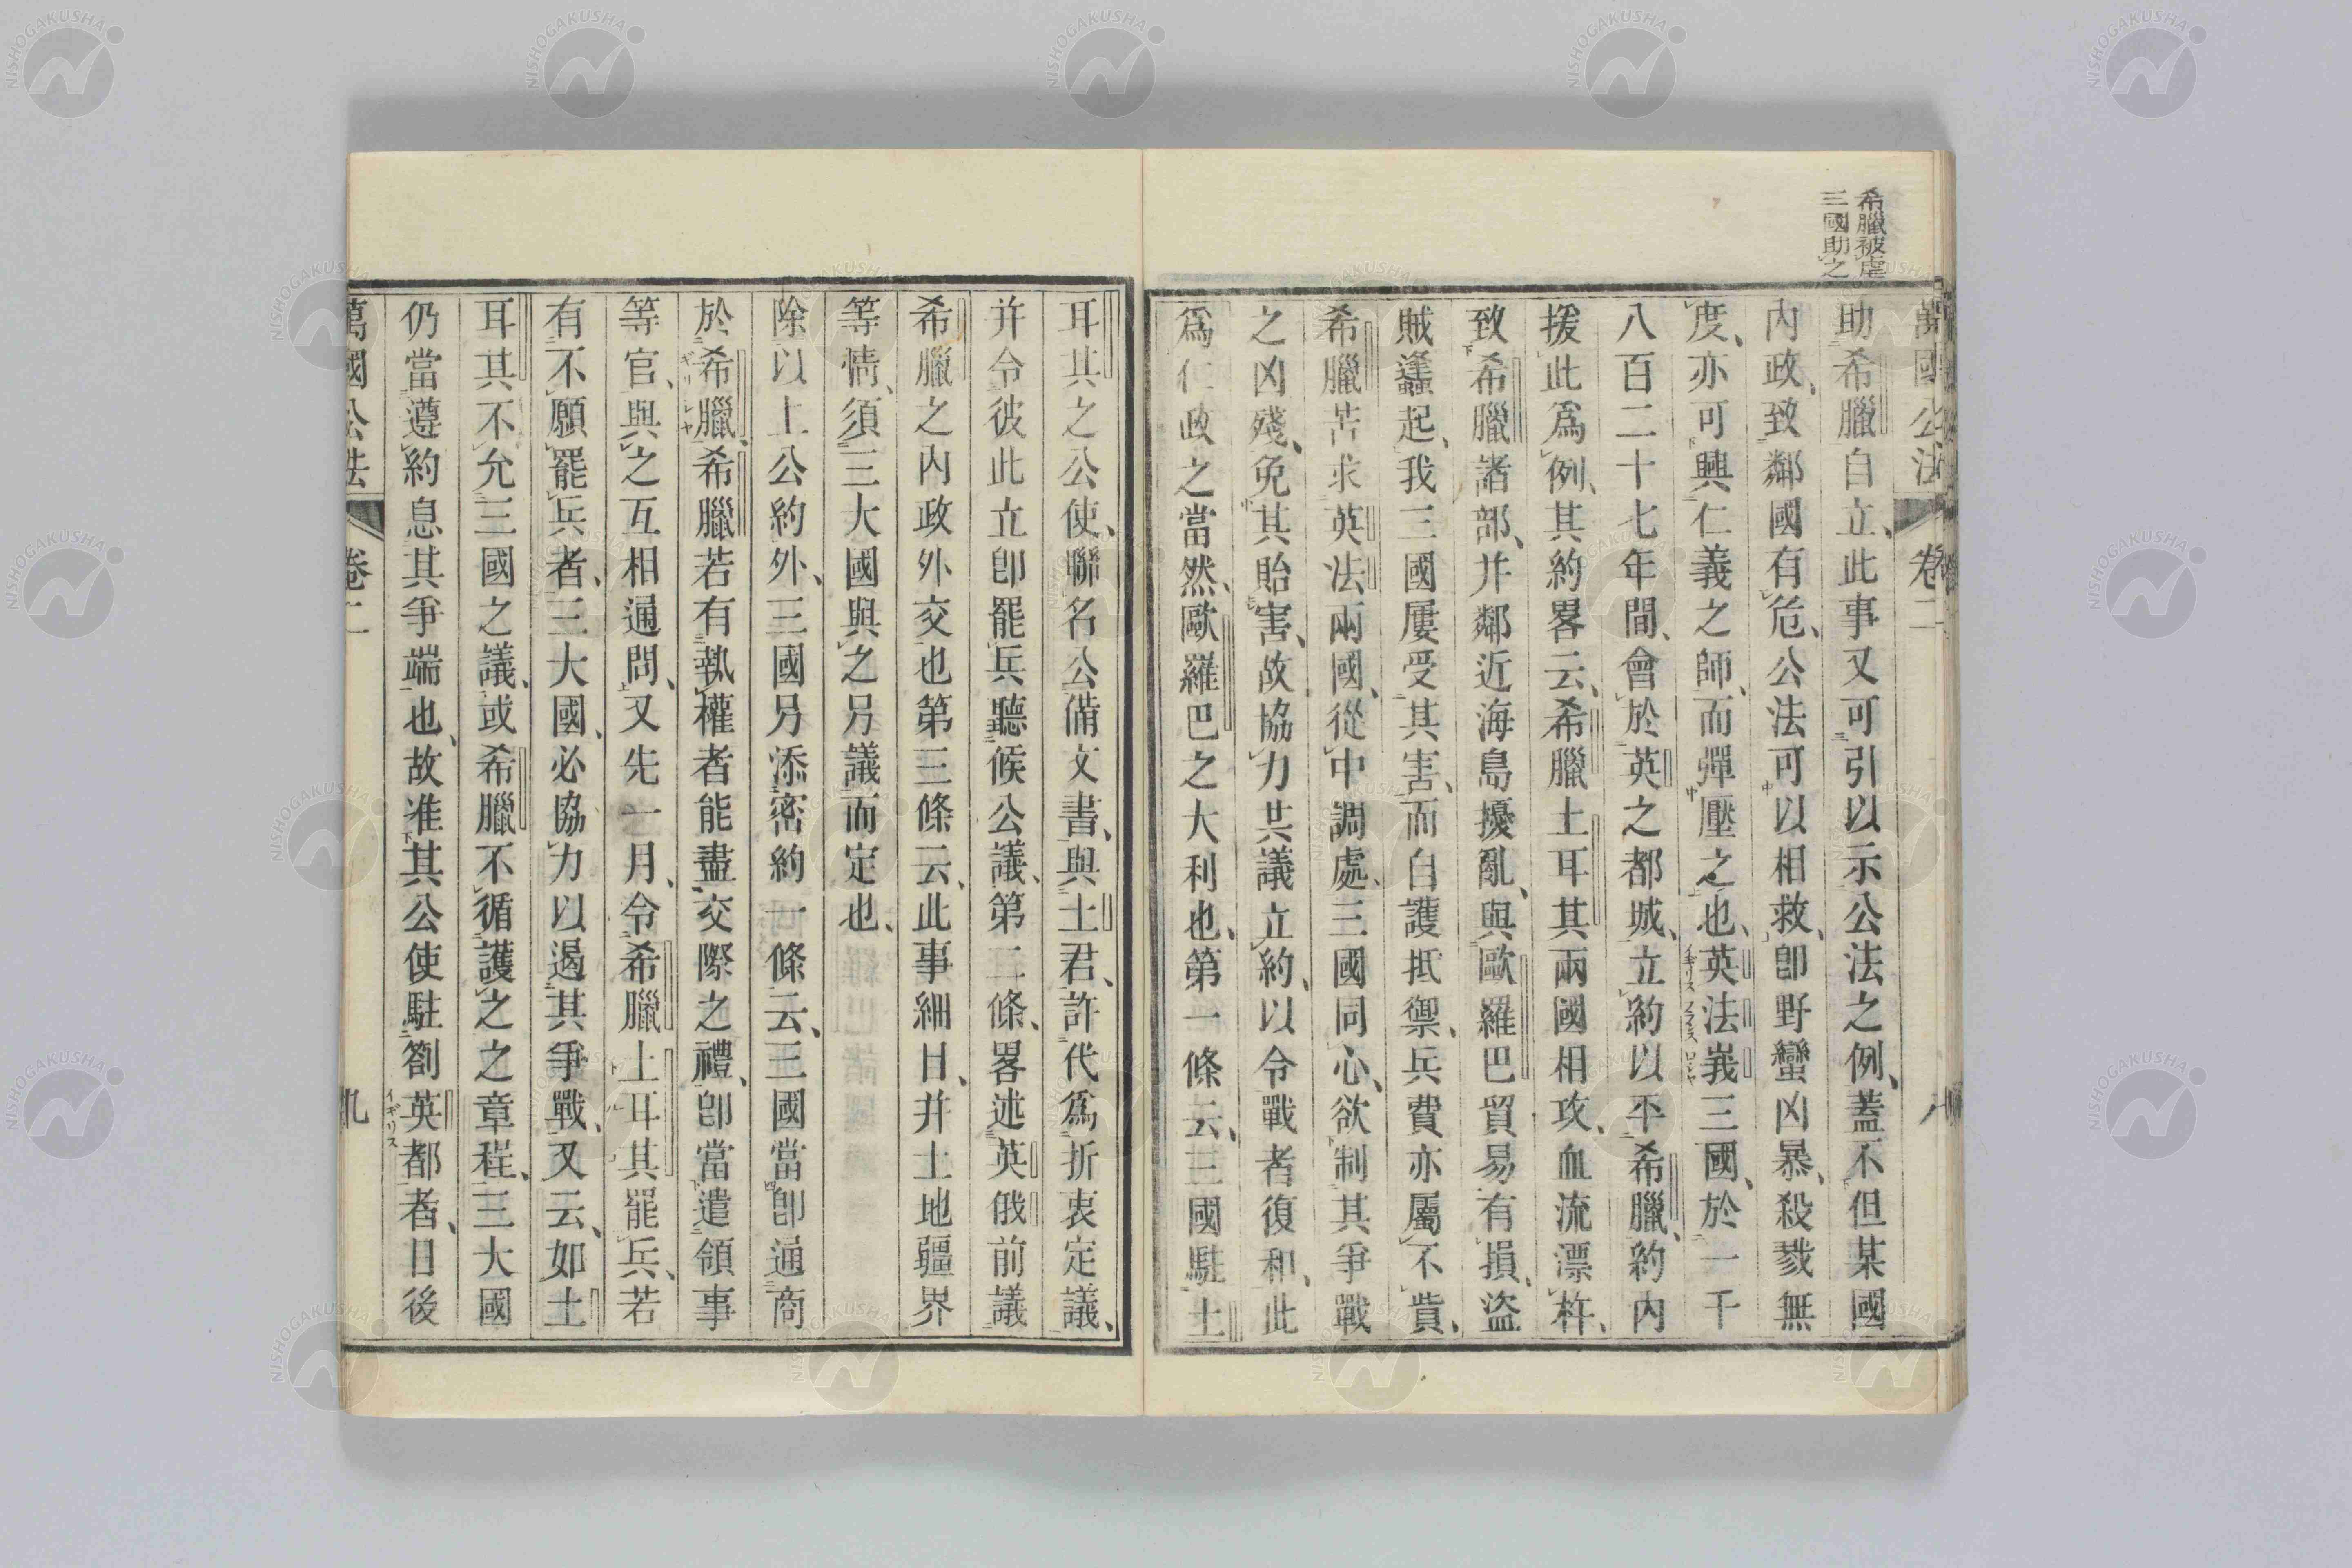 希臘被虐
三國助之
萬國公法 卷二 八
助希臘自立、此事又可引以示公法之例、蓋不但某國
內政、致鄰國有危、公法可以相救、卽野蠻凶暴、殺戮無
度、亦可興仁義之師、而彈壓之也、英法峩三國、於一千
イギリス フランス ロシヤ
八百二十七年間、會於英之都城、立約以平希臘、約內
援此爲例、其約畧云、希臘土耳其兩國相攻、血流漂杵、
致希臘諸部、并鄰近海島擾亂、與歐羅巴貿易有損、盜
賊蠭起、我三國屢受其害、而自護抵禦、兵費亦屬不貲、
希臘苦求英法兩國、從中調處、三國同心、欲制其爭戰
之凶殘、免其貽害、故協力共議立約、以令戰者復和、此
爲仁政之當然、歐羅巴之大利也、第一條云、三國駐土
耳其之公使、聯名公備文書、與土君、許代爲折衷定議、
并令彼此立卽罷兵聽候公議、第二條、畧述英俄前議
希臘之內政外交也第三條云、此事細目、并土地疆界
等情、須三大國與之另議而定也、
除以上公約外、三國另添密約一條云、三國當卽通商
於希臘、希臘若有執權者能盡交際之禮、卽當遣領事
ギリシヤ
等官、與之互相通問、又先一月、令希臘土耳其罷兵、若
有不願罷兵者、三大國、必協力以遏其爭戰、又云、如土
耳其不允三國之議、或希臘不循護之之章程、三大國
仍當遵約息其爭端也、故准其公使駐劄英都者、日後
イギリス
萬國公法 卷二 九
NISHOGAKUSHA